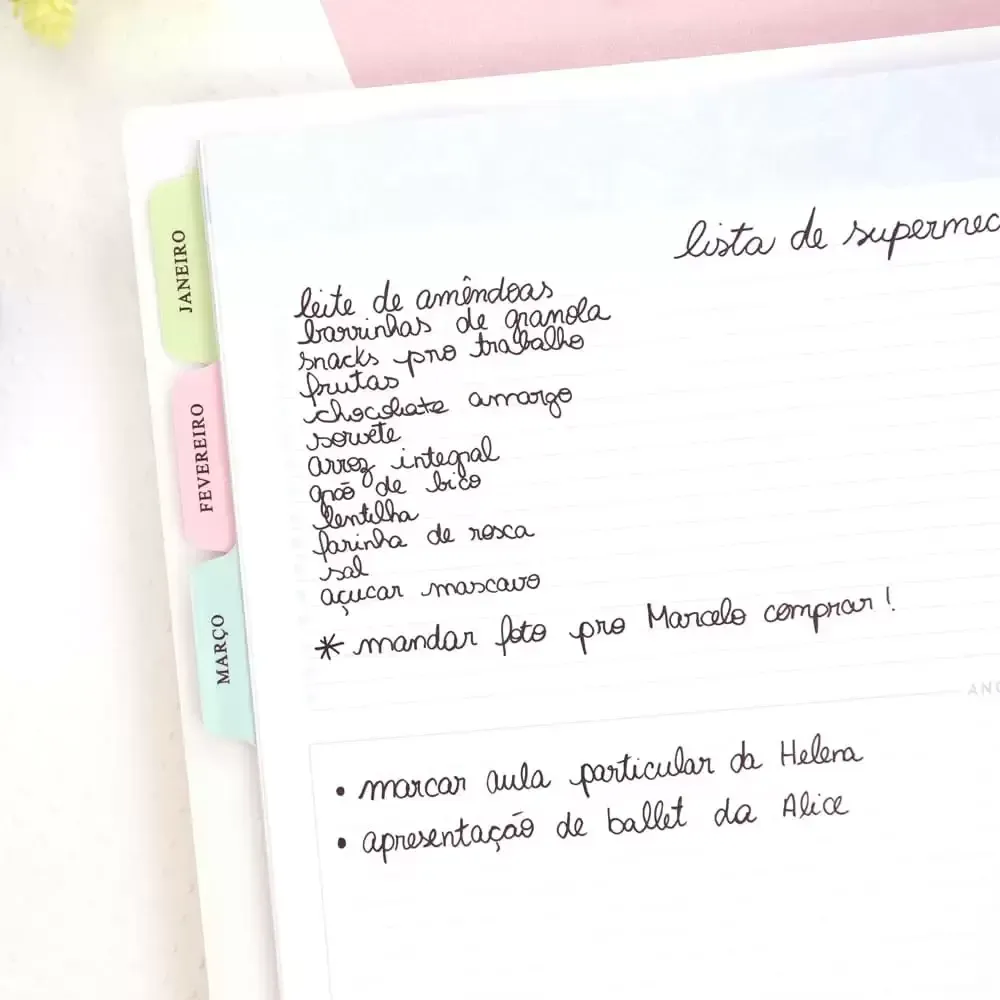 JANEIRO
FEVEREIRO
MARÇO
lista de supermec
leite de amêndoas
barrinhas de granola
snacks pro trabalho
frutas
chocolate amargo
sorvete
arroz integral
grão de bico
lentilha
farinha de rosca
sal
açucar mascavo
* mandar foto pro Marcelo comprar!
ANO
• marcar aula particular da Helena
• apresentação de ballet da Alice